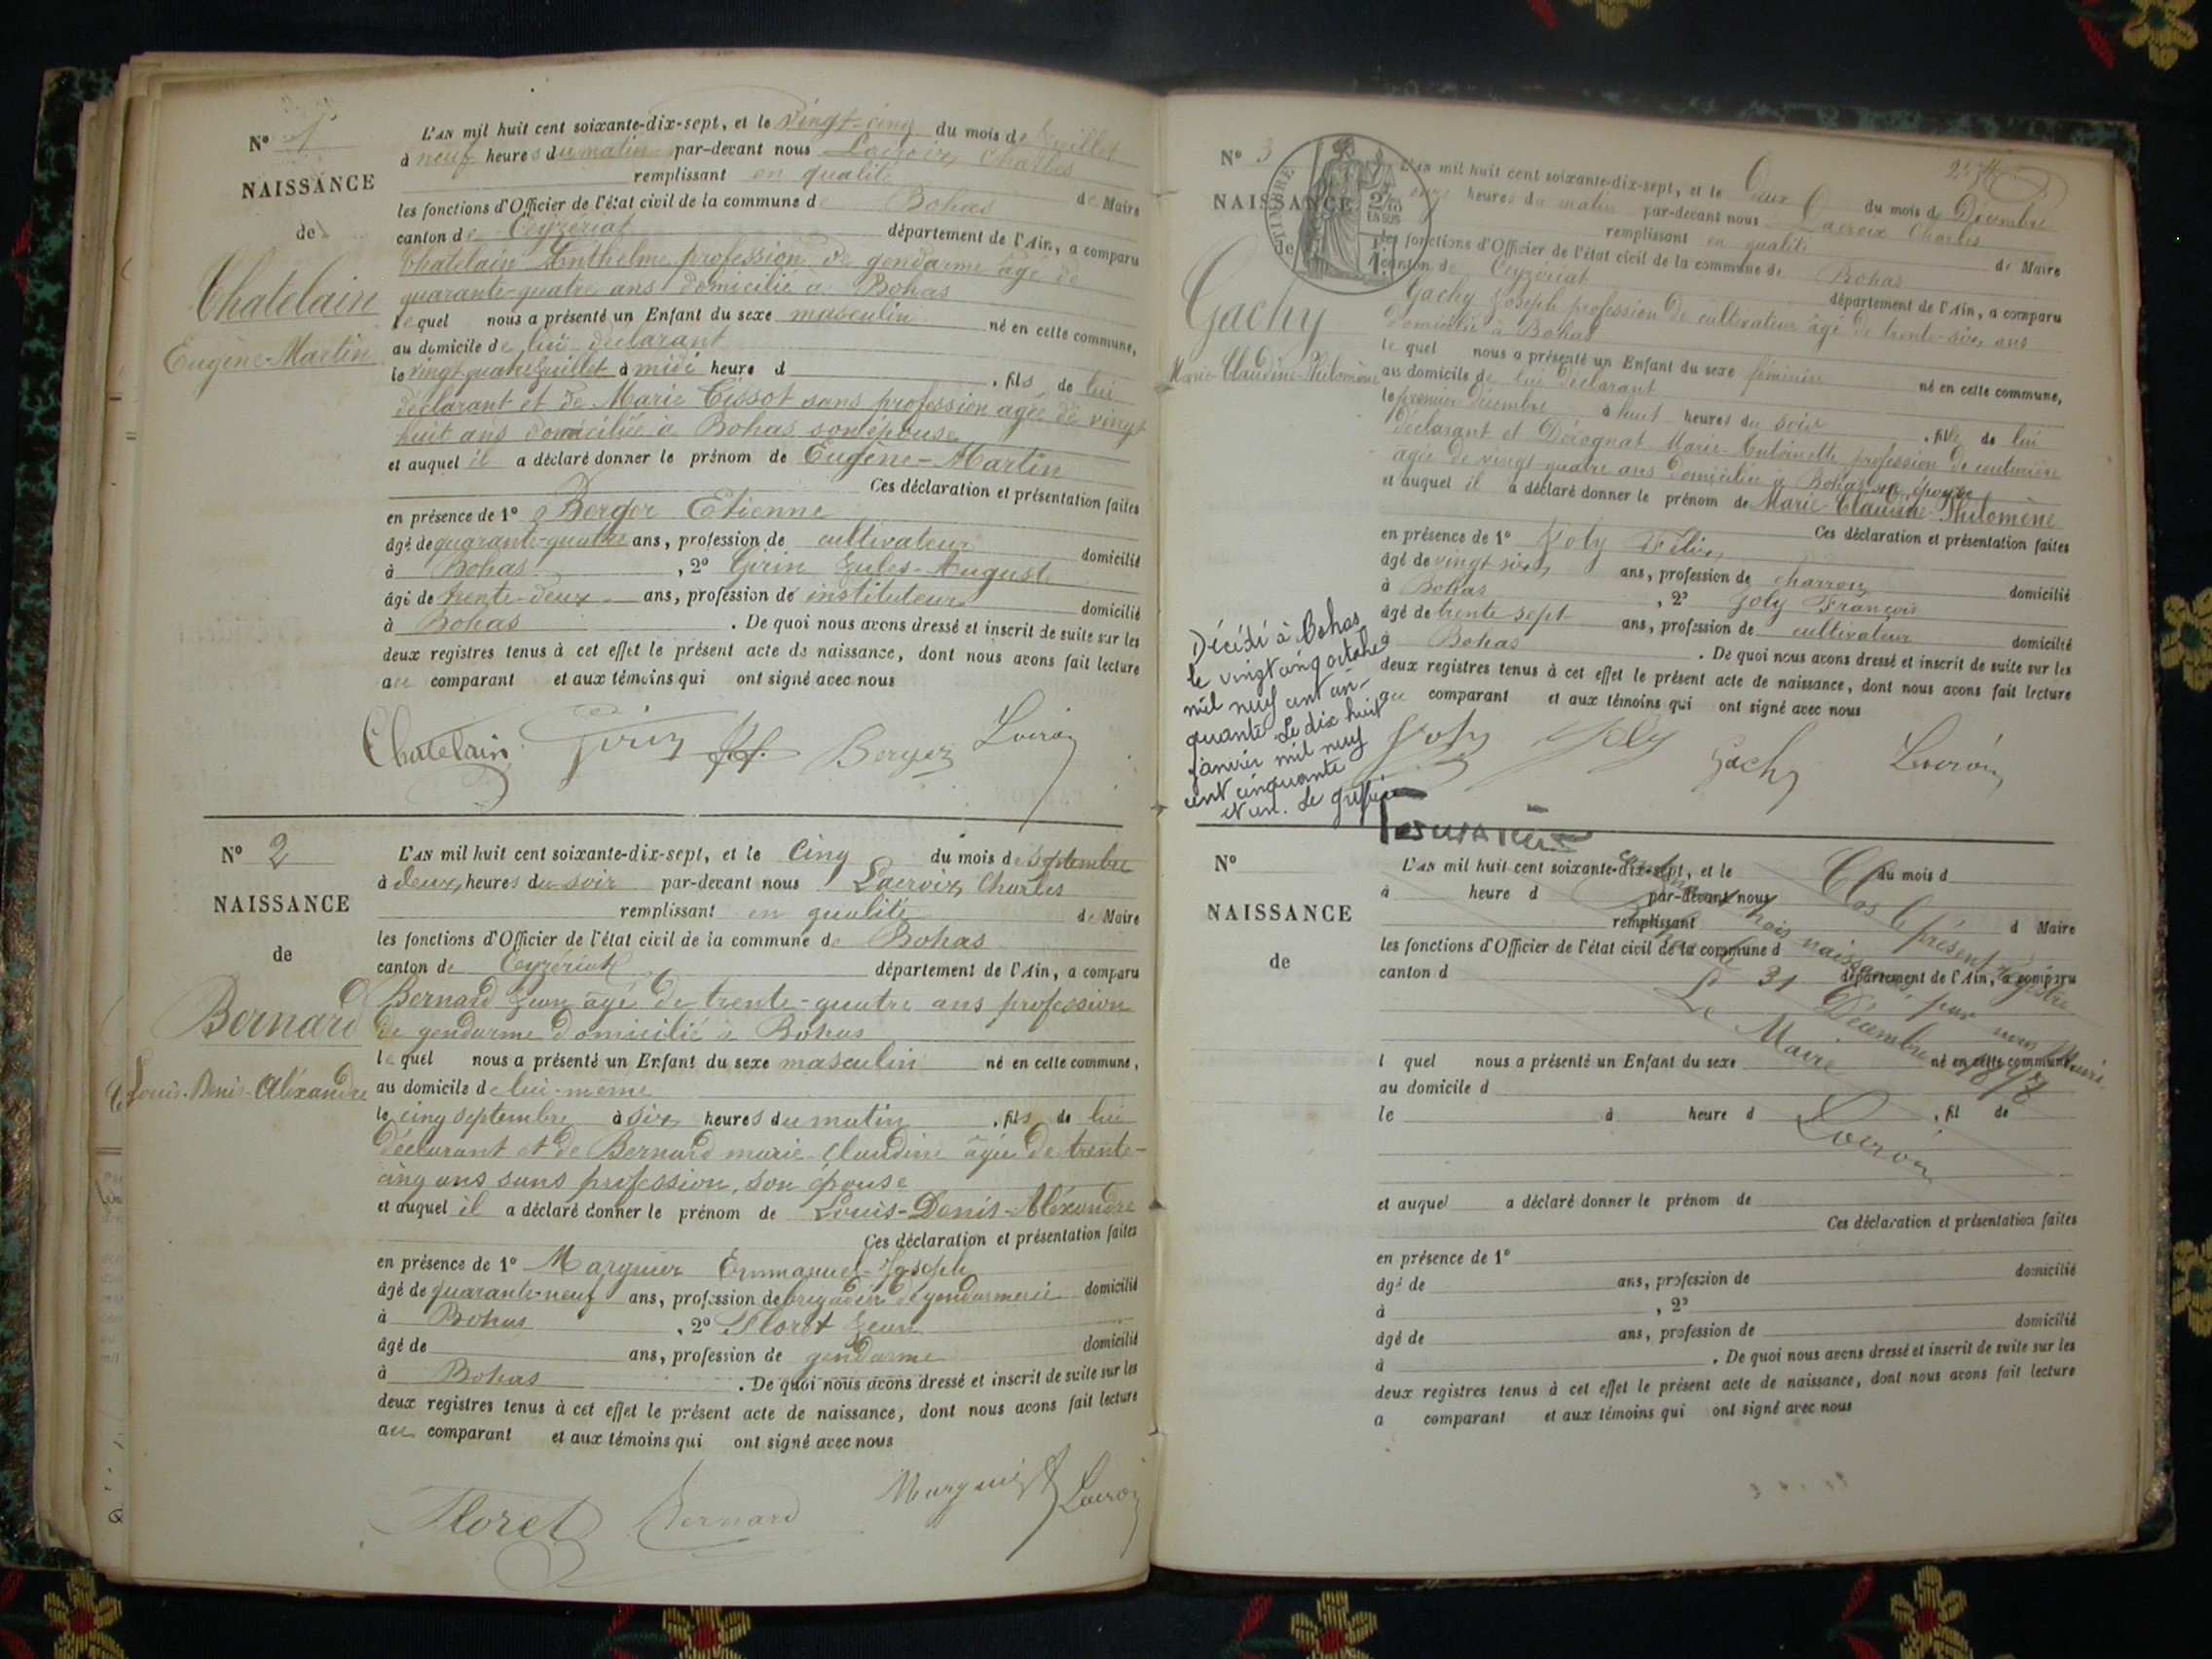 N° 1
NAISSANCE
de
Chatelain
Eugène-Martin
L'AN mil huit cent soixante-dix-sept, et le vingt-cinq du mois de Juillet
à neuf heures du matin par-devant nous Lacroix Charles
remplissant en qualité de Maire
les fonctions d'Officier de l'état civil de la commune de Bohas
canton de Ceyzériat département de l'Ain, a comparu
Chatelain Anthelme profession de gendarme âgé de
quarante-quatre ans domicilié à Bohas
lequel nous a présenté un Enfant du sexe masculin né en cette commune,
au domicile de lui déclarant
le vingt quatre Juillet à midi heure d , fils de lui
déclarant et de Marie Tissot sans profession agée de vingt
huit ans domiciliée à Bohas son épouse
et auquel il a déclaré donner le prénom de Eugène-Martin
Ces déclaration et présentation faites
en présence de 1° Berger Etienne
âgé de quarante-quatre ans, profession de cultivateur domicilié
à Bohas , 2° Girin Jules-Auguste
âgé de trente-deux ans, profession de instituteur domicilié
à Bohas . De quoi nous avons dressé et inscrit de suite sur les
deux registres tenus à cet effet le présent acte de naissance, dont nous avons fait lecture
au comparant et aux témoins qui ont signé avec nous
Chatelain Girin Berger Lacroix
N° 2
NAISSANCE
de
Bernard
Louis-Denis-Aléxandre
L'AN mil huit cent soixante-dix-sept, et le cinq du mois de Septembre
à deux heures du soir par-devant nous Lacroix Charles
remplissant en qualité de Maire
les fonctions d'Officier de l'état civil de la commune de Bohas
canton de Ceyzériat département de l'Ain, a comparu
Bernard Jean âgé de trente-quatre ans profession
de gendarme domicilié à Bohas
lequel nous a présenté un Enfant du sexe masculin né en cette commune,
au domicile de lui-meme
le cinq septembre à six heures du matin , fils de lui
déclarant et de Bernard marie-Claudine âgée de trente-
cinq ans sans profession, son épouse
et auquel il a déclaré donner le prénom de Louis-Denis-Aléxandre
Ces déclaration et présentation faites
en présence de 1° Marguier Emmanuel-Joseph
âgé de quarante-neuf ans, profession de brigadier de gendarmerie domicilié
à Bohas , 2° Floret Jean
âgé de ans, profession de gendarme domicilié
à Bohas . De quoi nous avons dressé et inscrit de suite sur les
deux registres tenus à cet effet le présent acte de naissance, dont nous avons fait lecture
au comparant et aux témoins qui ont signé avec nous
Floret Bernard Marguier Lacroix
N° 3
NAISSANCE
de
TIMBRE
2/10
EN SUS
Gachy
Marie-Claudine-Philomène
L'AN mil huit cent soixante-dix-sept, et le Deux du mois de Décembre
heures du matin par-devant nous Lacroix Charles
remplissant en qualité de Maire
les fonctions d'Officier de l'état civil de la commune de Bohas
canton de Ceyzériat département de l'Ain, a comparu
Gachy Joseph profession de cultivateur âgé de trente-six ans
domicilié à Bohas
lequel nous a présenté un Enfant du sexe féminin né en cette commune,
au domicile de lui déclarant
le premier Décembre à huit heures du soir , fille de lui
déclarant et Dérognat Marie-Antoinette profession de couturière
agée de vingt-quatre ans domiciliée à Bohas son épouse
et auquel il a déclaré donner le prénom de Marie-Claudine-Philomène
Ces déclaration et présentation faites
en présence de 1° Joly Félix
âgé de vingt six ans, profession de charron domicilié
à Bohas , 2° Joly François
âgé de trente sept ans, profession de cultivateur domicilié
à Bohas . De quoi nous avons dressé et inscrit de suite sur les
deux registres tenus à cet effet le présent acte de naissance, dont nous avons fait lecture
au comparant et aux témoins qui ont signé avec nous
Joly Joly Gachy Lacroix
Décédé à Bohas
le vingt cinq octobre
mil neuf cent cin-
quante Le dix huit
Janvier mil neuf
cent cinquante
et un. Le greffier
N°
NAISSANCE
de
L'AN mil huit cent soixante-dix-sept, et le du mois d
à heure d par-devant nous
remplissant d Maire
les fonctions d'Officier de l'état civil de la commune d
canton d département de l'Ain, a comparu
l quel nous a présenté un Enfant du sexe né en cette commune,
au domicile d
le à heure d , fil de
et auquel a déclaré donner le prénom de
Ces déclaration et présentation faites
en présence de 1°
âgé de ans, profession de domicilié
à , 2°
âgé de ans, profession de domicilié
à . De quoi nous avons dressé et inscrit de suite sur les
deux registres tenus à cet effet le présent acte de naissance, dont nous avons fait lecture
a comparant et aux témoins qui ont signé avec nous
Clos le présent registre
trois naissances, par nous Maire
le 31 Décembre 1877
Le Maire
Lacroix